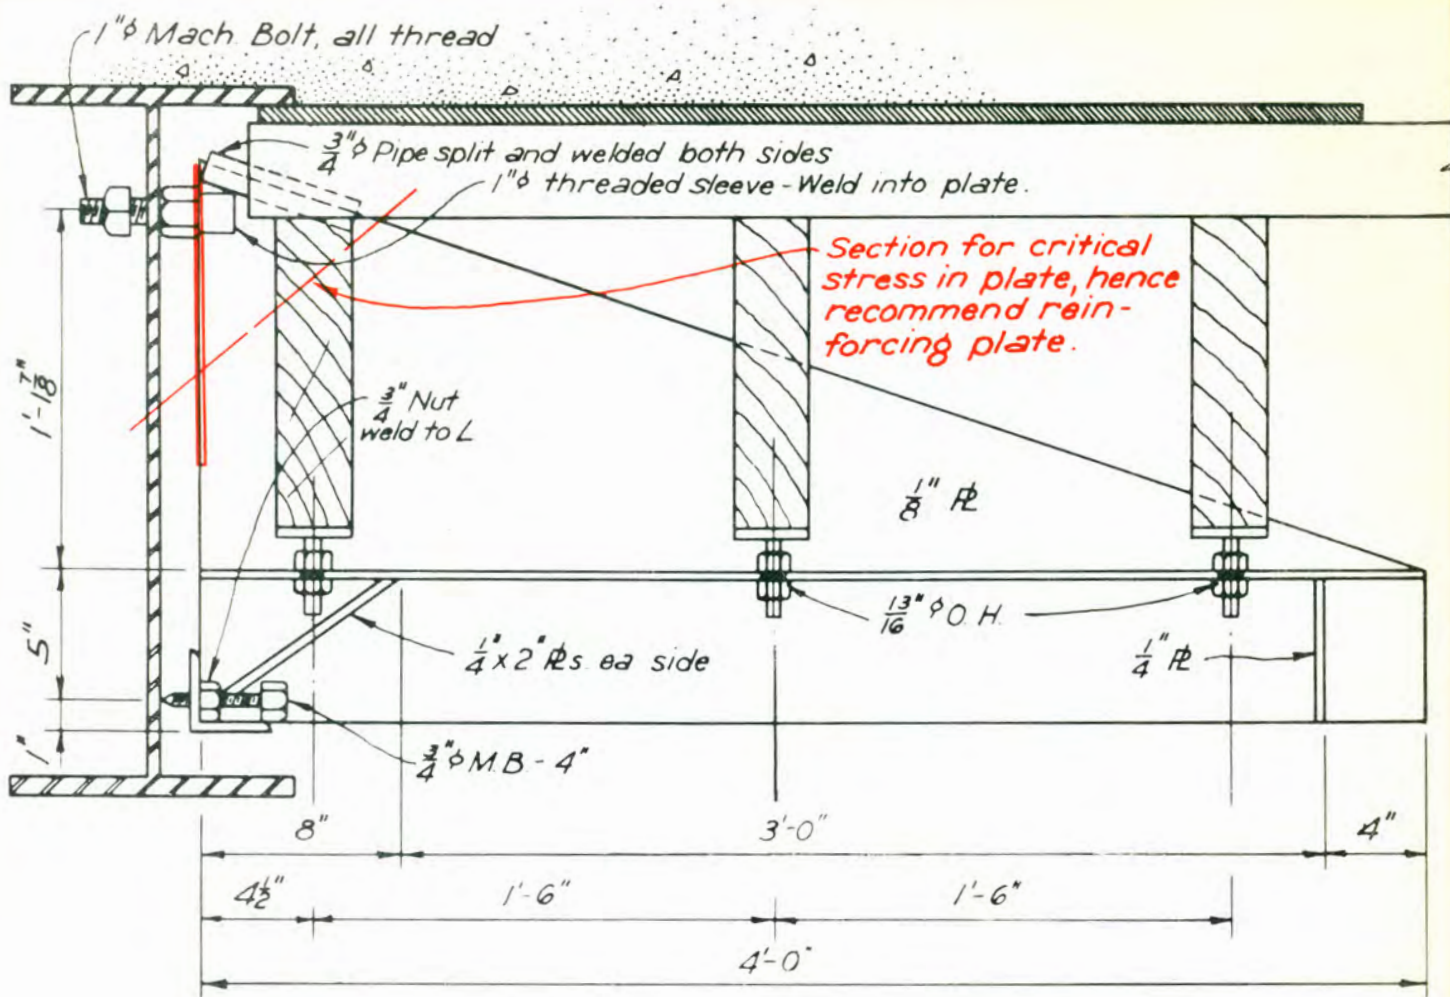 1"ϕ Mach. Bolt, all thread
3/4"ϕ Pipe split and welded both sides
1"ϕ threaded sleeve - Weld into plate.
Section for critical
stress in plate, hence
recommend rein-
forcing plate.
1'-1 7/8"
3/4" Nut
weld to L
1/8" ℄
13/16"ϕ O.H.
5"
1/4" x 2" ℄s. ea side
1/4" ℄
1"
3/4"ϕ M.B. - 4"
8"
3'-0"
4"
4 1/2"
1'-6"
1'-6"
4'-0"